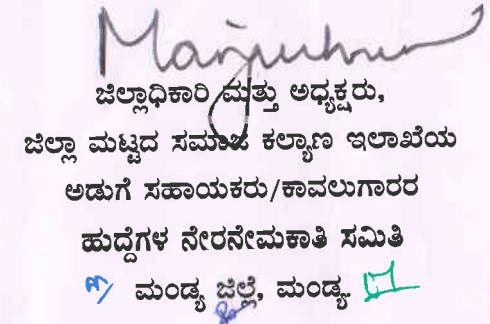 ಜಿಲ್ಲಾಧಿಕಾರಿ ಮತ್ತು ಅಧ್ಯಕ್ಷರು,
ಜಿಲ್ಲಾ ಮಟ್ಟದ ಸಮಾಜ ಕಲ್ಯಾಣ ಇಲಾಖೆಯ
ಅಡುಗೆ ಸಹಾಯಕರು/ಕಾವಲುಗಾರರ
ಹುದ್ದೆಗಳ ನೇರನೇಮಕಾತಿ ಸಮಿತಿ
ಮಂಡ್ಯ ಜಿಲ್ಲೆ, ಮಂಡ್ಯ.